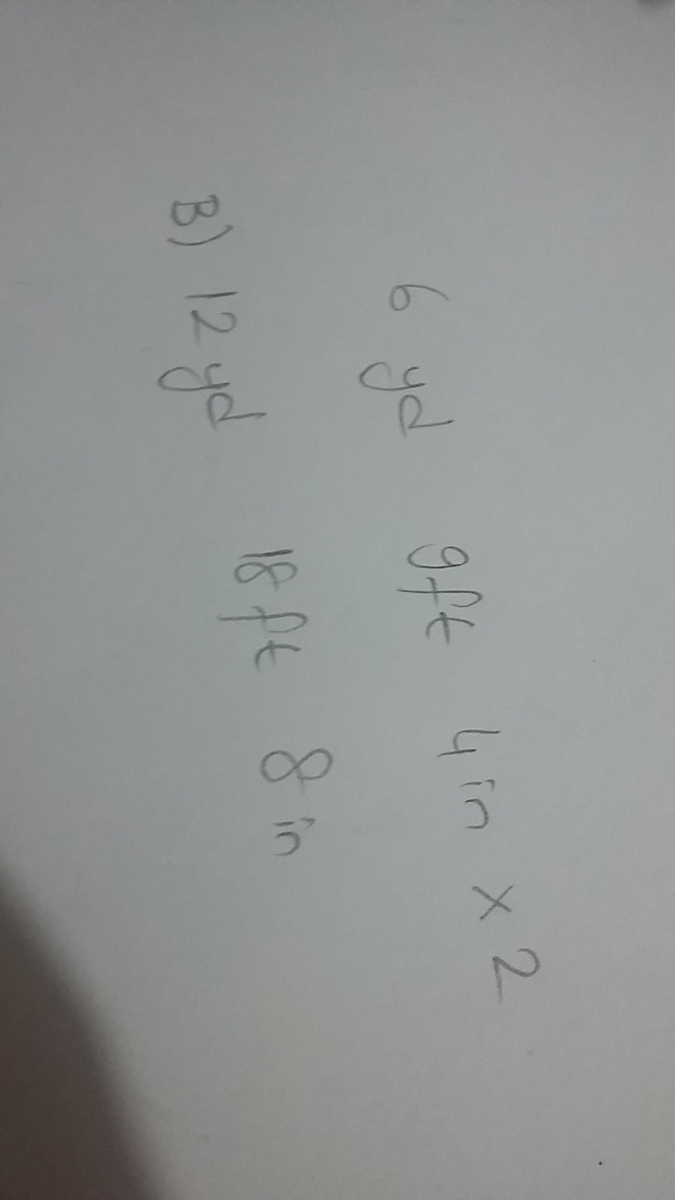 6 yd 9ft 4in x 2
B) 12 yd 18 ft 8 in